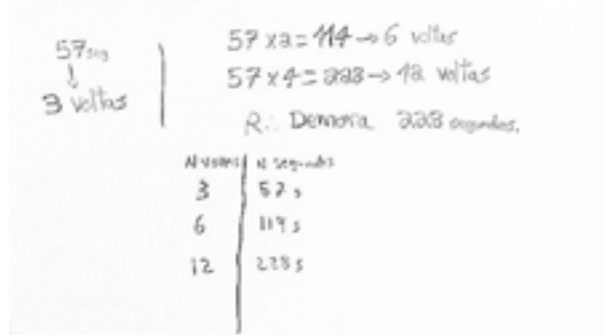 57 seg
↓
3 voltas
57 x 2 = 114 → 6 voltas
57 x 4 = 228 → 12 voltas
R.: Demora 228 segundos.
N voltas N segundos
3 57 s
6 114 s
12 228 s